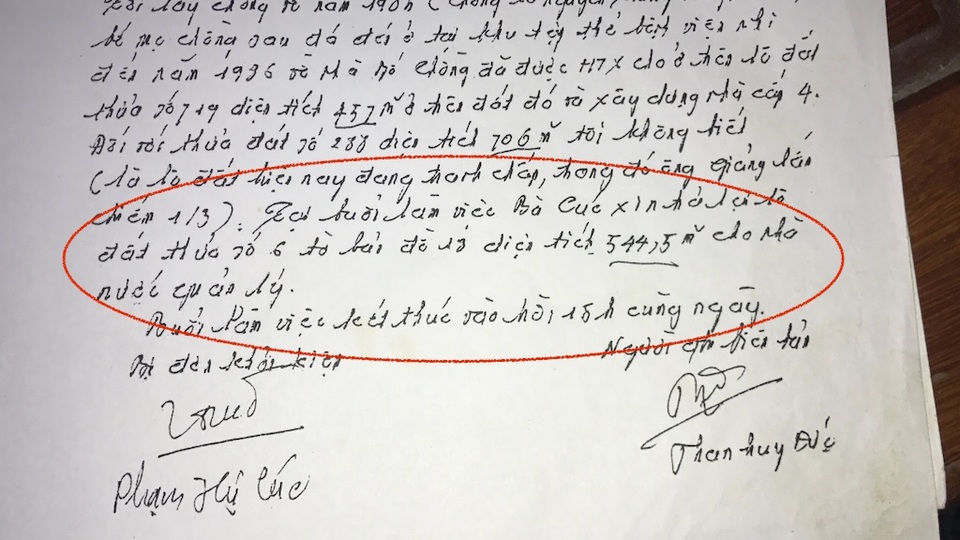 Tôi lấy chồng về năm 19
bố mẹ chồng sau đó đến ở tại khu tập thể bệnh viện nhi
đến năm 1986 về nhà bố chồng đã được HTX cho ở trên lô đất
thửa số 719 diện tích 457 m² ở trên đất đó và xây dựng nhà cấp 4.
Đối với thửa đất số 288 diện tích 706 m² tôi không biết
(là lô đất hiện nay đang tranh chấp, trong đó ông Giảng lấn
chiếm 1/3). Tại buổi làm việc Bà Cúc xin trả lại lô
đất thửa số 6 tờ bản đồ 18 diện tích 544,5 m² cho nhà
nước quản lý.
Buổi làm việc kết thúc vào hồi 15h cùng ngày.
Bị đơn khởi kiện
Người ghi biên bản
Phạm Thị Cúc
Phan Huy Đức